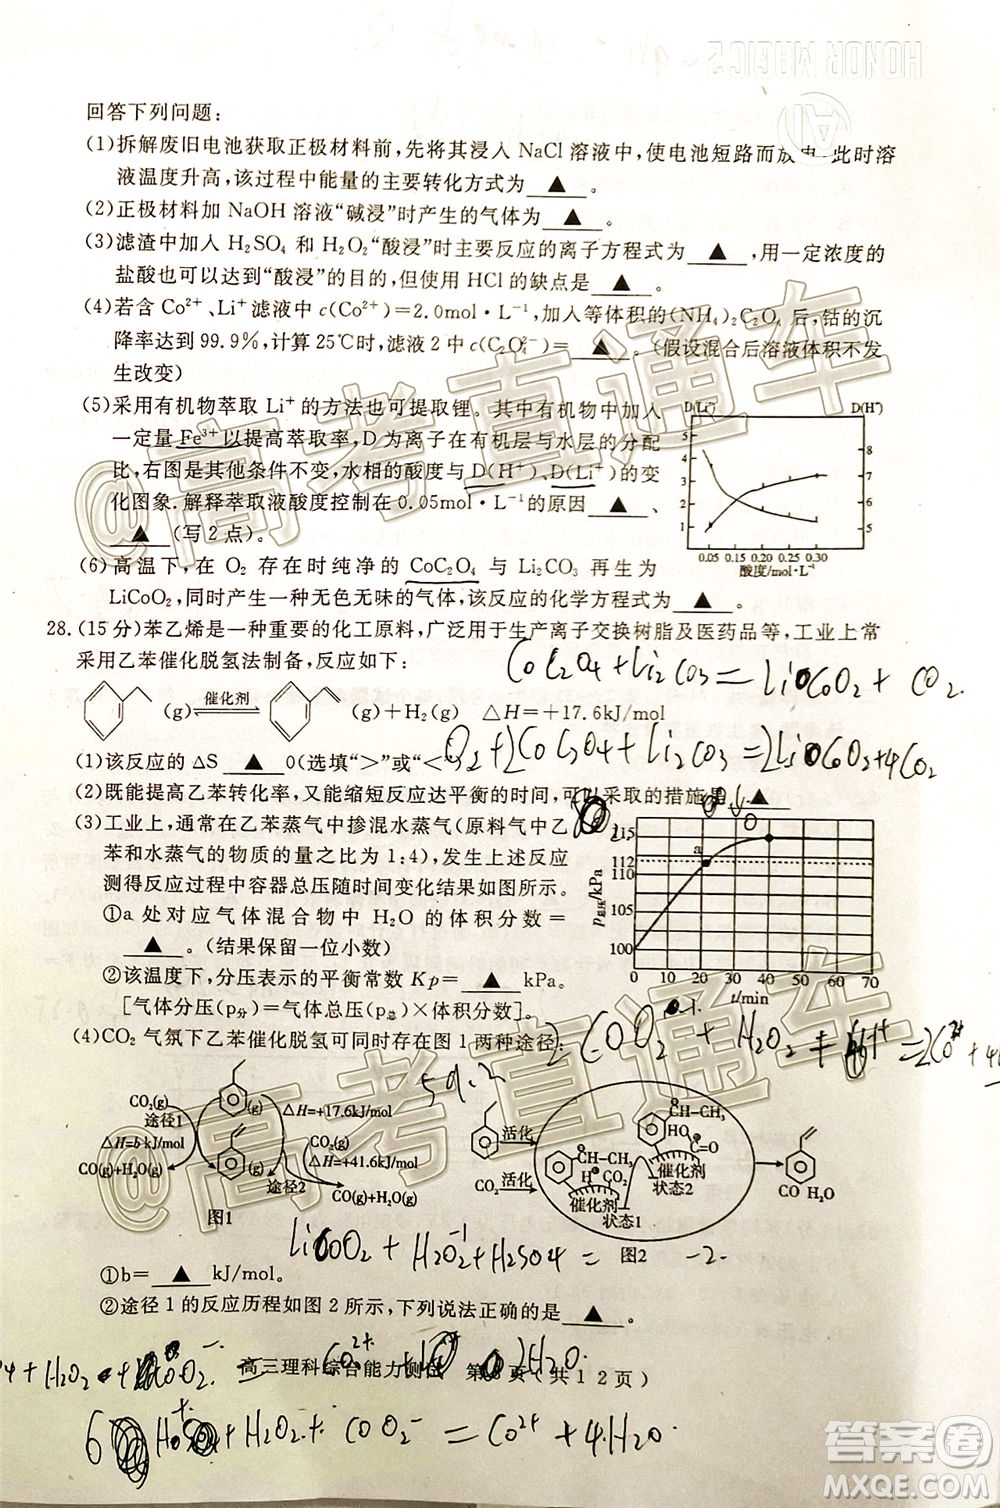 HONOR MAGIC 2
AI
回答下列问题:
(1)拆解废旧电池获取正极材料前,先将其浸入 NaCl 溶液中,使电池短路而放电,此时溶
液温度升高,该过程中能量的主要转化方式为 ▲ 。
(2)正极材料加 NaOH 溶液“碱浸”时产生的气体为 ▲ 。
(3)滤渣中加入 H₂SO₄ 和 H₂O₂“酸浸”时主要反应的离子方程式为 ▲ ,用一定浓度的
盐酸也可以达到“酸浸”的目的,但使用 HCl 的缺点是 ▲ 。
(4)若含 Co²⁺、Li⁺ 滤液中 c(Co²⁺)=2.0mol·L⁻¹,加入等体积的(NH₄)₂C₂O₄ 后,钴的沉
降率达到 99.9%,计算 25℃时,滤液 2 中 c(C₂O₄²⁻)= ▲ 。(假设混合后溶液体积不发
生改变)
(5)采用有机物萃取 Li⁺ 的方法也可提取锂。其中有机物中加入
一定量 Fe³⁺以提高萃取率,D 为离子在有机层与水层的分配
比,右图是其他条件不变,水相的酸度与 D(H⁺)、D(Li⁺)的变
化图象.解释萃取液酸度控制在 0.05mol·L⁻¹的原因 ▲ 、
▲ (写 2 点)。
D(Li⁺) D(H⁺)
5 4 3 2 1
8 7 6 5
0.05 0.10 0.20 0.30
酸度/mol·L⁻¹
(6)高温下,在 O₂ 存在时纯净的 CoC₂O₄ 与 Li₂CO₃ 再生为
LiCoO₂,同时产生一种无色无味的气体,该反应的化学方程式为 ▲ 。
28.(15 分)苯乙烯是一种重要的化工原料,广泛用于生产离子交换树脂及医药品等,工业上常
采用乙苯催化脱氢法制备,反应如下:
CoC₂O₄+Li₂CO₃=LiCoO₂+CO₂.
(g) 催化剂 (g)+H₂(g) △H=+17.6kJ/mol
O₂+2CoC₂O₄+Li₂CO₃=2LiCoO₂+4CO₂
(1)该反应的 △S ▲ 0(选填“>”或“<
(2)既能提高乙苯转化率,又能缩短反应达平衡的时间,可以采取的措施是 ▲
(3)工业上,通常在乙苯蒸气中掺混水蒸气(原料气中乙
苯和水蒸气的物质的量之比为 1:4),发生上述反应,
测得反应过程中容器总压随时间变化结果如图所示。
①a 处对应气体混合物中 H₂O 的体积分数=
▲ 。(结果保留一位小数)
②该温度下,分压表示的平衡常数 Kp= ▲ kPa。
[气体分压(p分)=气体总压(p总)×体积分数]。
p总压/kPa
115
112
110
105
100
a
0 10 20 30 40 50 60 70
t/min
(4)CO₂ 气氛下乙苯催化脱氢可同时存在图 1 两种途径:
2CoO₂⁻+H₂O₂+
H⁺=2Co²⁺+4H
59.2
CO₂(g)
途径1
△H=b kJ/mol
CO(g)+H₂O(g)
(g)
(g)
△H=+17.6kJ/mol
CO₂(g)
△H=+41.6kJ/mol
途径2
CO(g)+H₂O(g)
图1
活化
CO₂ 活化
CH—CH₃
H CO₂
催化剂
状态1
CH—CH₃
HO C=O
催化剂
状态2
CO H₂O
图2
LiCoO₂+H₂O₂+H₂SO₄=
-2.
①b= ▲ kJ/mol。
②途径 1 的反应历程如图 2 所示,下列说法正确的是 ▲ 。
高三理科综合能力测试 第 8 页(共 1 2 页)
+H₂O₂+CoO₂⁻=Co²⁺+4H₂O
@高考直通车
@高考直通车
答案圈
MXQE.COM